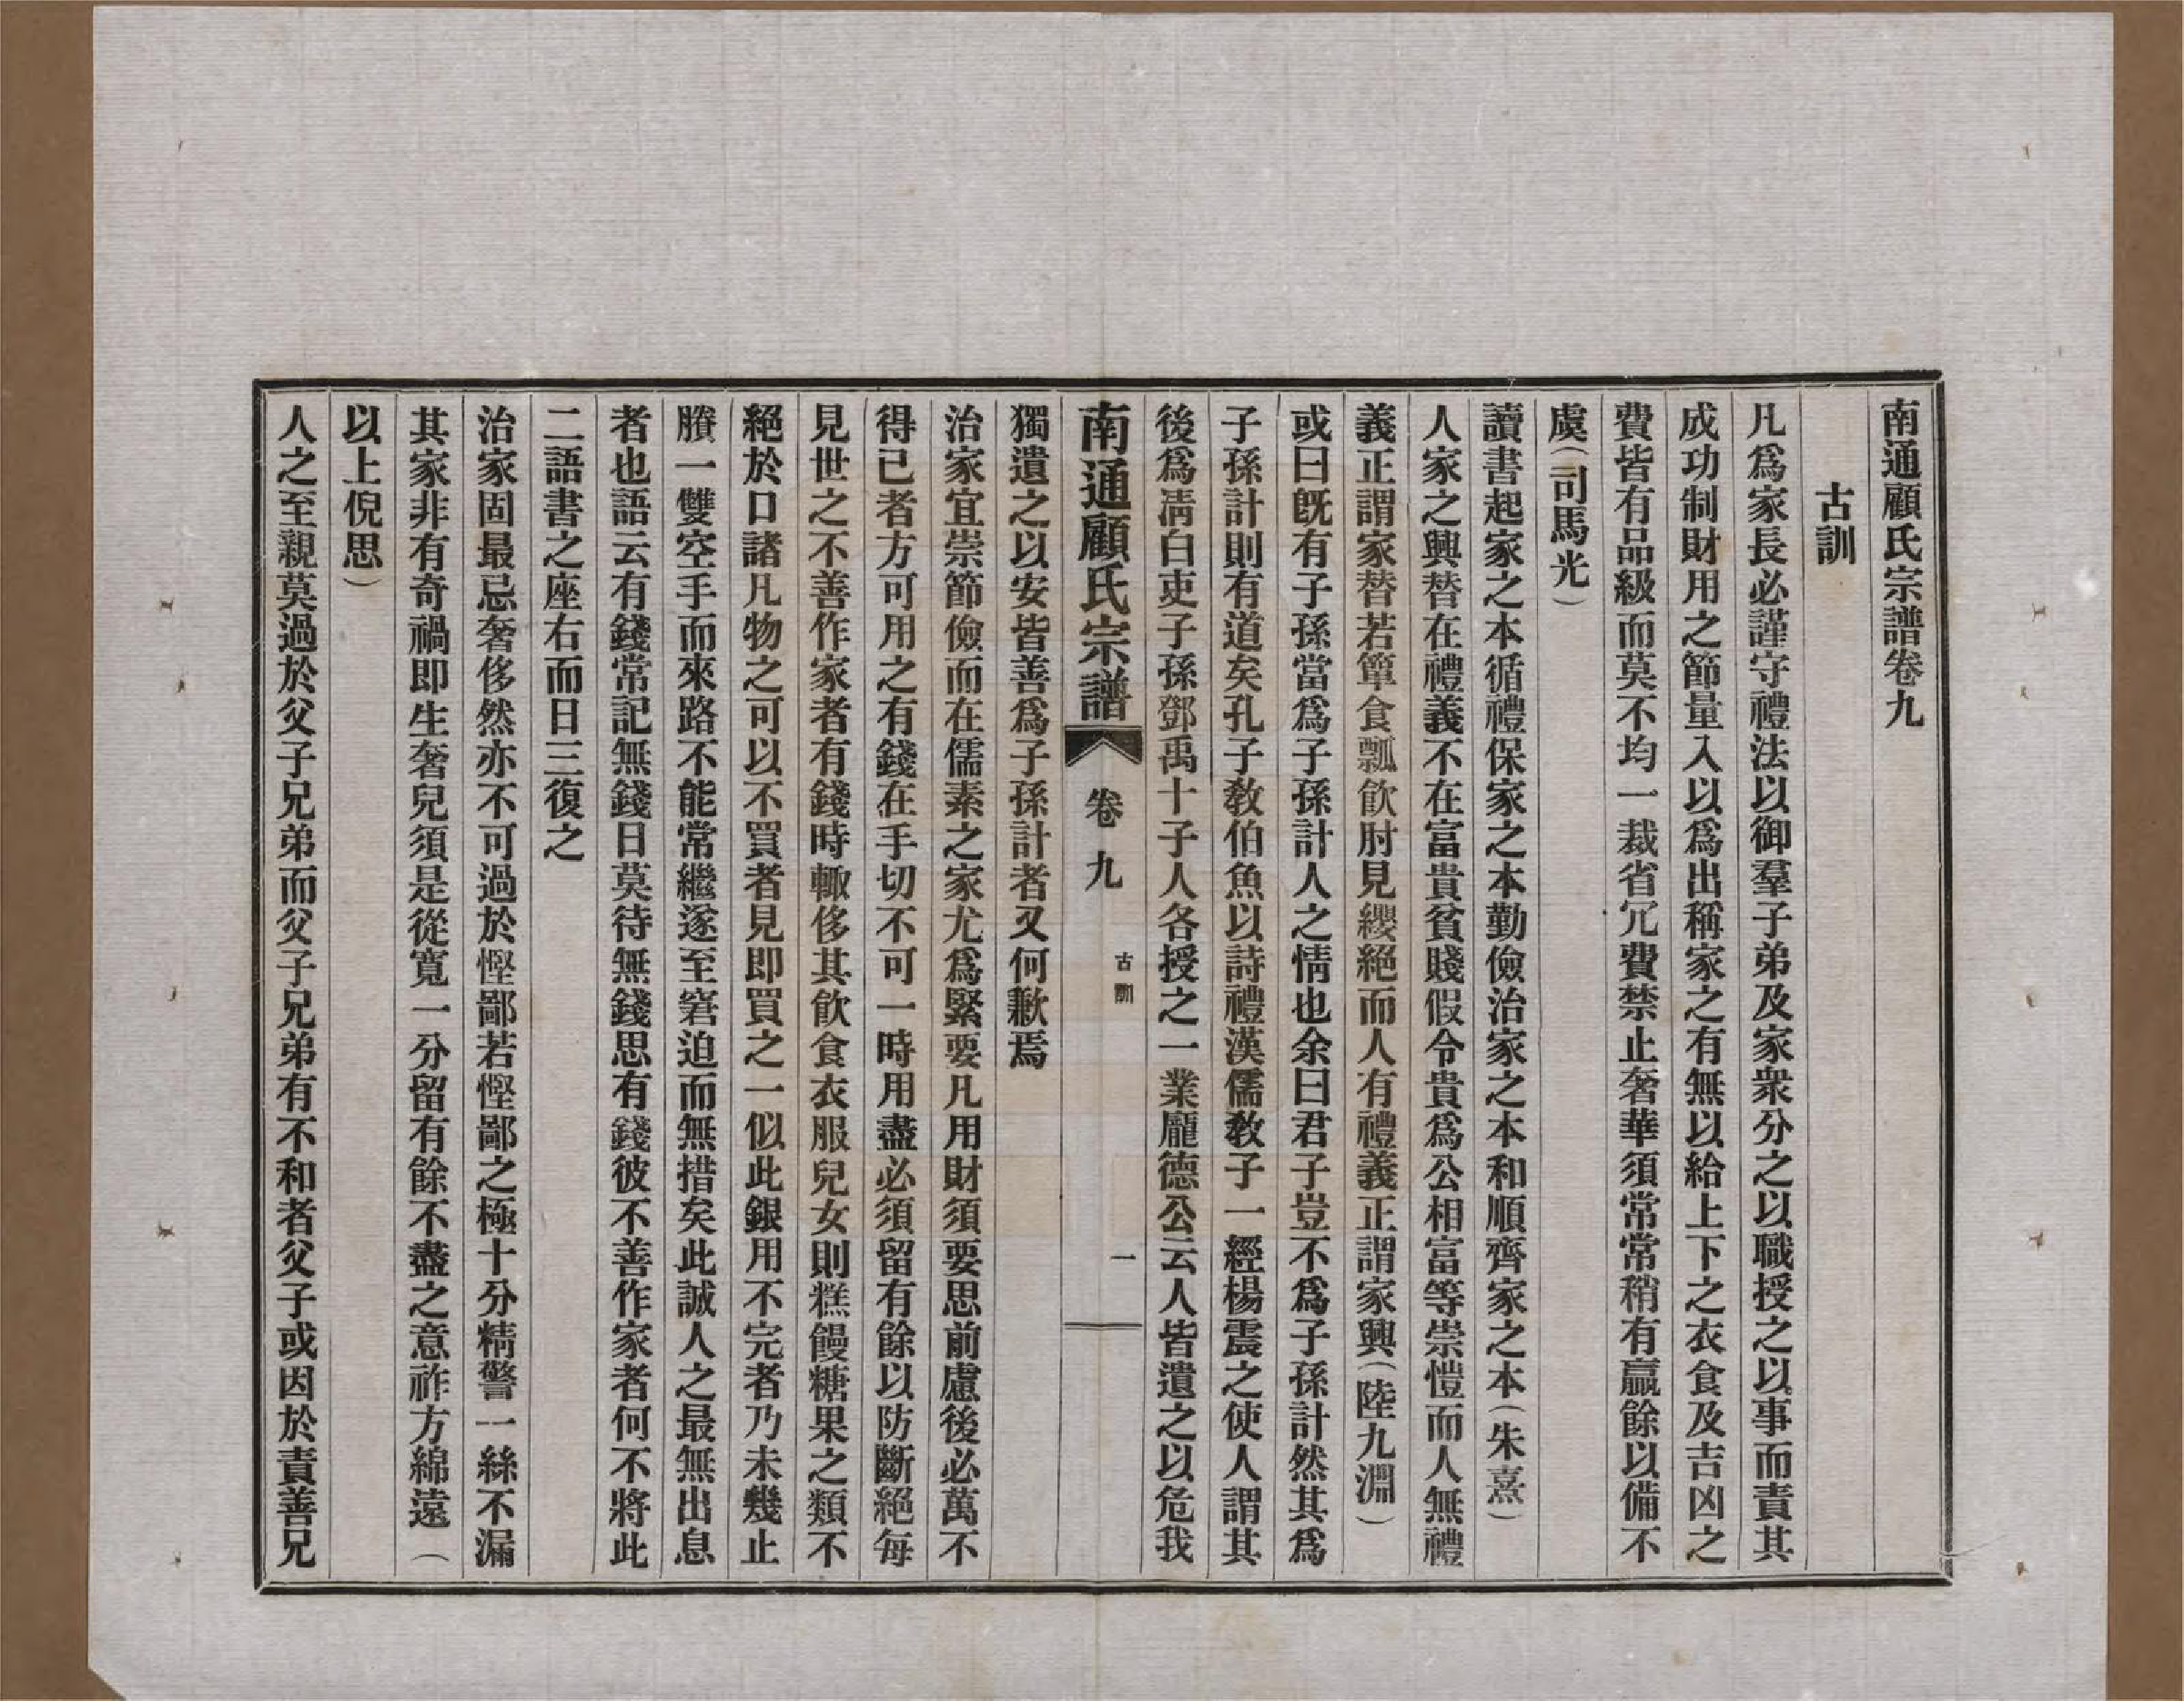 南通顧氏宗譜卷九
古訓
凡爲家長必謹守禮法以御羣子弟及家衆分之以職授之以事而責其
成功制財用之節量入以爲出稱家之有無以給上下之衣食及吉凶之
費皆有品級而莫不均一裁省冗費禁止奢華須常常稍有贏餘以備不
虞（司馬光）
讀書起家之本循禮保家之本勤儉治家之本和順齊家之本（朱熹）
人家之興替在禮義不在富貴貧賤假令貴爲公相富等崇愷而人無禮
義正謂家替若簞食瓢飮肘見纓絕而人有禮義正謂家興（陸九淵）
或曰旣有子孫當爲子孫計人之情也余曰君子豈不爲子孫計然其爲
子孫計則有道矣孔子敎伯魚以詩禮漢儒敎子一經楊震之使人謂其
後爲凊白吏子孫鄧禹十子人各授之一業龐德公云人皆遺之以危我
南通顧氏宗譜 卷九 古訓 一
獨遺之以安皆善爲子孫計者又何歉焉
治家宜崇節儉而在儒素之家尤爲緊要凡用財須要思前慮後必萬不
得已者方可用之有錢在手切不可一時用盡必須留有餘以防斷絕每
見世之不善作家者有錢時輙侈其飮食衣服兒女則糕饅糖果之類不
絕於口諸凡物之可以不買者見即買之一似此銀用不完者乃未幾止
賸一雙空手而來路不能常繼遂至窘迫而無措矣此誠人之最無出息
者也語云有錢常記無錢日莫待無錢思有錢彼不善作家者何不將此
二語書之座右而日三復之
治家固最忌奢侈然亦不可過於慳鄙若慳鄙之極十分精警一絲不漏
其家非有奇禍即生奢兒須是從寬一分留有餘不盡之意祚方綿遠（
以上倪思）
人之至親莫過於父子兄弟而父子兄弟有不和者父子或因於責善兄